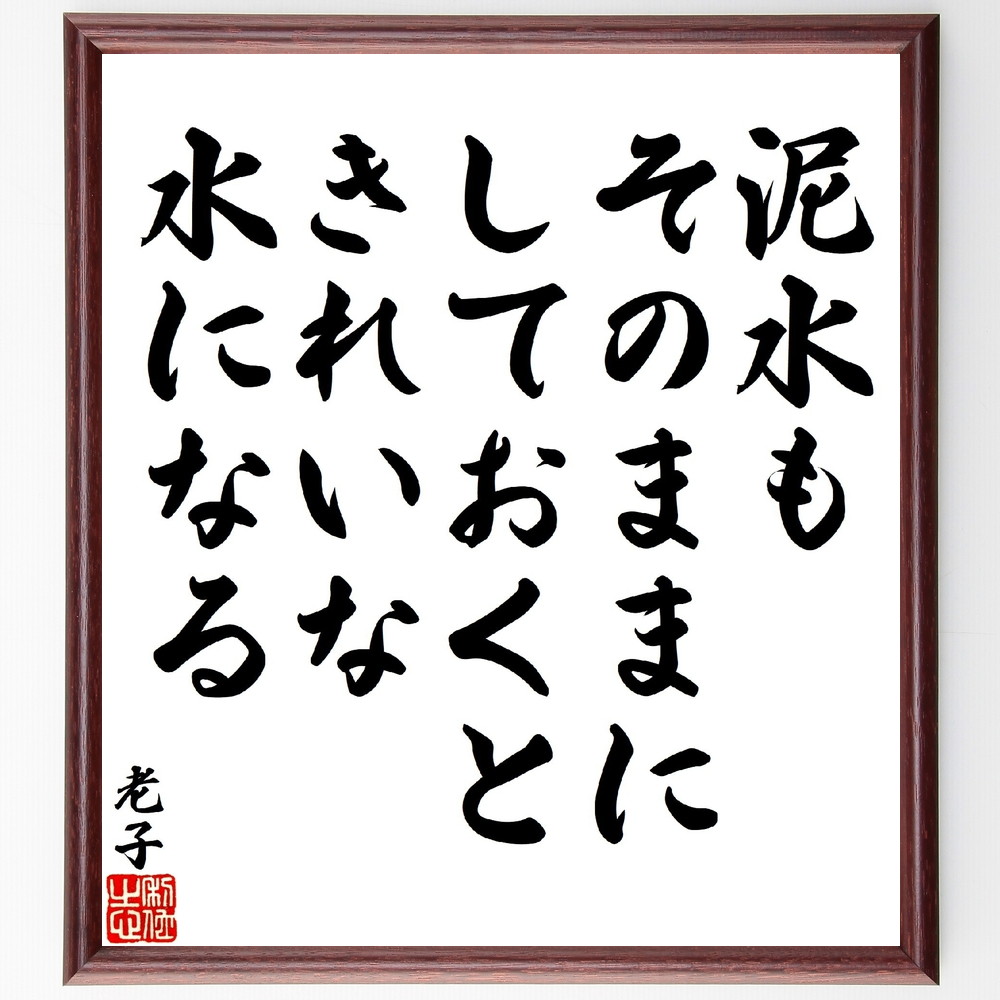 泥水も
そのままに
しておくと
きれいな
水になる
老子